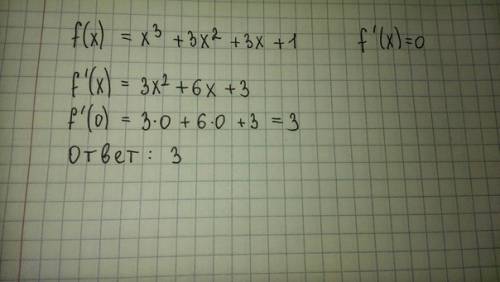 f(x) = x³ + 3x² + 3x + 1 f'(x)=0
f'(x) = 3x² + 6x + 3
f'(0) = 3·0 + 6·0 + 3 = 3
Ответ: 3